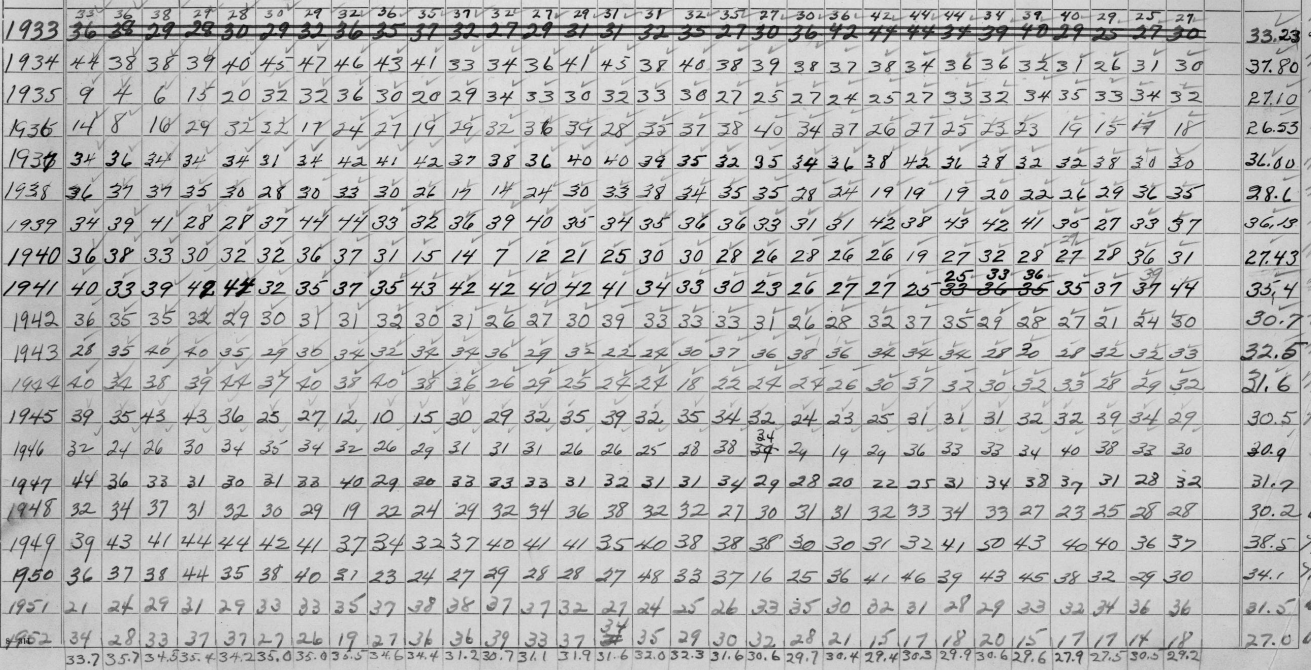 33 36 38 29 28 30 29 32 36 35 37 32 27 29 31 31 32 35 27 30 36 42 44 44 34 39 40 29 25 27
1933 36 38 29 28 30 29 32 36 35 37 32 27 29 31 31 32 35 27 30 36 42 44 44 34 39 40 29 25 27 30 33.23
1934 44 38 38 39 40 45 47 46 43 41 33 34 36 41 45 38 40 38 39 38 37 38 34 36 36 32 31 26 31 30 37.80
1935 9 4 6 15 20 32 32 36 30 20 29 34 33 30 32 33 30 27 25 27 24 25 27 33 32 34 35 33 34 32 27.10
1936 14 8 16 29 32 32 17 24 27 19 29 32 36 39 28 35 37 38 40 34 37 26 27 25 23 23 19 15 19 18 26.53
1937 34 36 34 34 34 31 34 42 41 42 37 38 36 40 40 39 35 32 35 34 36 38 42 36 38 32 32 38 30 30 36.00
1938 36 37 37 35 30 28 30 33 30 26 17 14 24 30 33 38 34 35 35 28 24 19 19 19 20 22 26 29 36 35 28.6
1939 34 39 41 28 28 37 44 44 33 32 36 39 40 35 34 35 36 36 33 31 31 42 38 43 42 41 35 27 33 37 36.13
27
1940 36 38 33 30 32 32 36 37 31 15 14 7 12 21 25 30 30 28 26 28 26 26 19 27 32 28 27 28 36 31 27.43
25 33 36 39
1941 40 33 39 42 44 32 35 37 35 43 42 42 40 42 41 34 33 30 23 26 27 27 25 33 36 35 35 37 37 44 35.4
1942 36 35 35 32 29 30 31 31 32 30 31 26 27 30 39 33 33 33 31 26 28 32 37 35 29 28 27 21 24 30 30.7
1943 28 35 40 40 35 29 30 34 32 34 34 36 29 32 22 24 30 37 36 38 36 34 34 34 28 30 28 32 32 33 32.5
1944 40 34 38 39 44 37 40 38 40 38 36 26 29 25 24 24 18 22 24 24 26 30 37 32 30 32 33 28 29 32 31.6
1945 39 35 43 43 36 25 27 12 10 15 30 29 32 35 39 32 35 34 32 24 23 25 31 31 31 32 32 39 34 29 30.5
34
1946 32 24 26 30 34 35 34 32 26 29 31 31 31 26 26 25 28 38 39 29 19 29 36 33 33 34 40 38 33 30 30.9
1947 44 36 33 31 30 31 33 40 29 30 33 33 33 31 32 31 31 34 29 28 20 22 25 31 34 38 37 31 28 32 31.7
1948 32 34 37 31 32 30 29 19 22 24 29 32 34 36 38 32 32 27 30 31 31 32 33 34 33 27 23 25 28 28 30.2
1949 39 43 41 44 44 42 41 37 34 32 37 40 41 41 35 40 38 38 38 30 30 31 32 41 50 43 40 40 36 37 38.5
1950 36 37 38 44 35 38 40 31 23 24 27 29 28 28 27 48 33 37 16 25 36 41 46 39 43 45 38 32 29 30 34.1
1951 21 24 29 31 29 33 33 35 37 38 38 37 37 32 27 24 25 26 33 35 30 32 31 28 29 33 32 34 36 36 31.5
34
1952 34 28 33 37 37 27 26 19 27 36 36 39 33 37 35 29 30 32 28 21 15 17 18 20 15 17 17 14 18 27.0
33.7 35.7 34.5 35.4 34.2 35.0 35.0 35.5 34.6 34.4 31.2 30.7 31.1 31.9 31.6 32.0 32.3 31.6 30.6 29.7 30.4 29.4 30.3 29.9 30.6 29.6 27.9 27.5 30.5 29.2